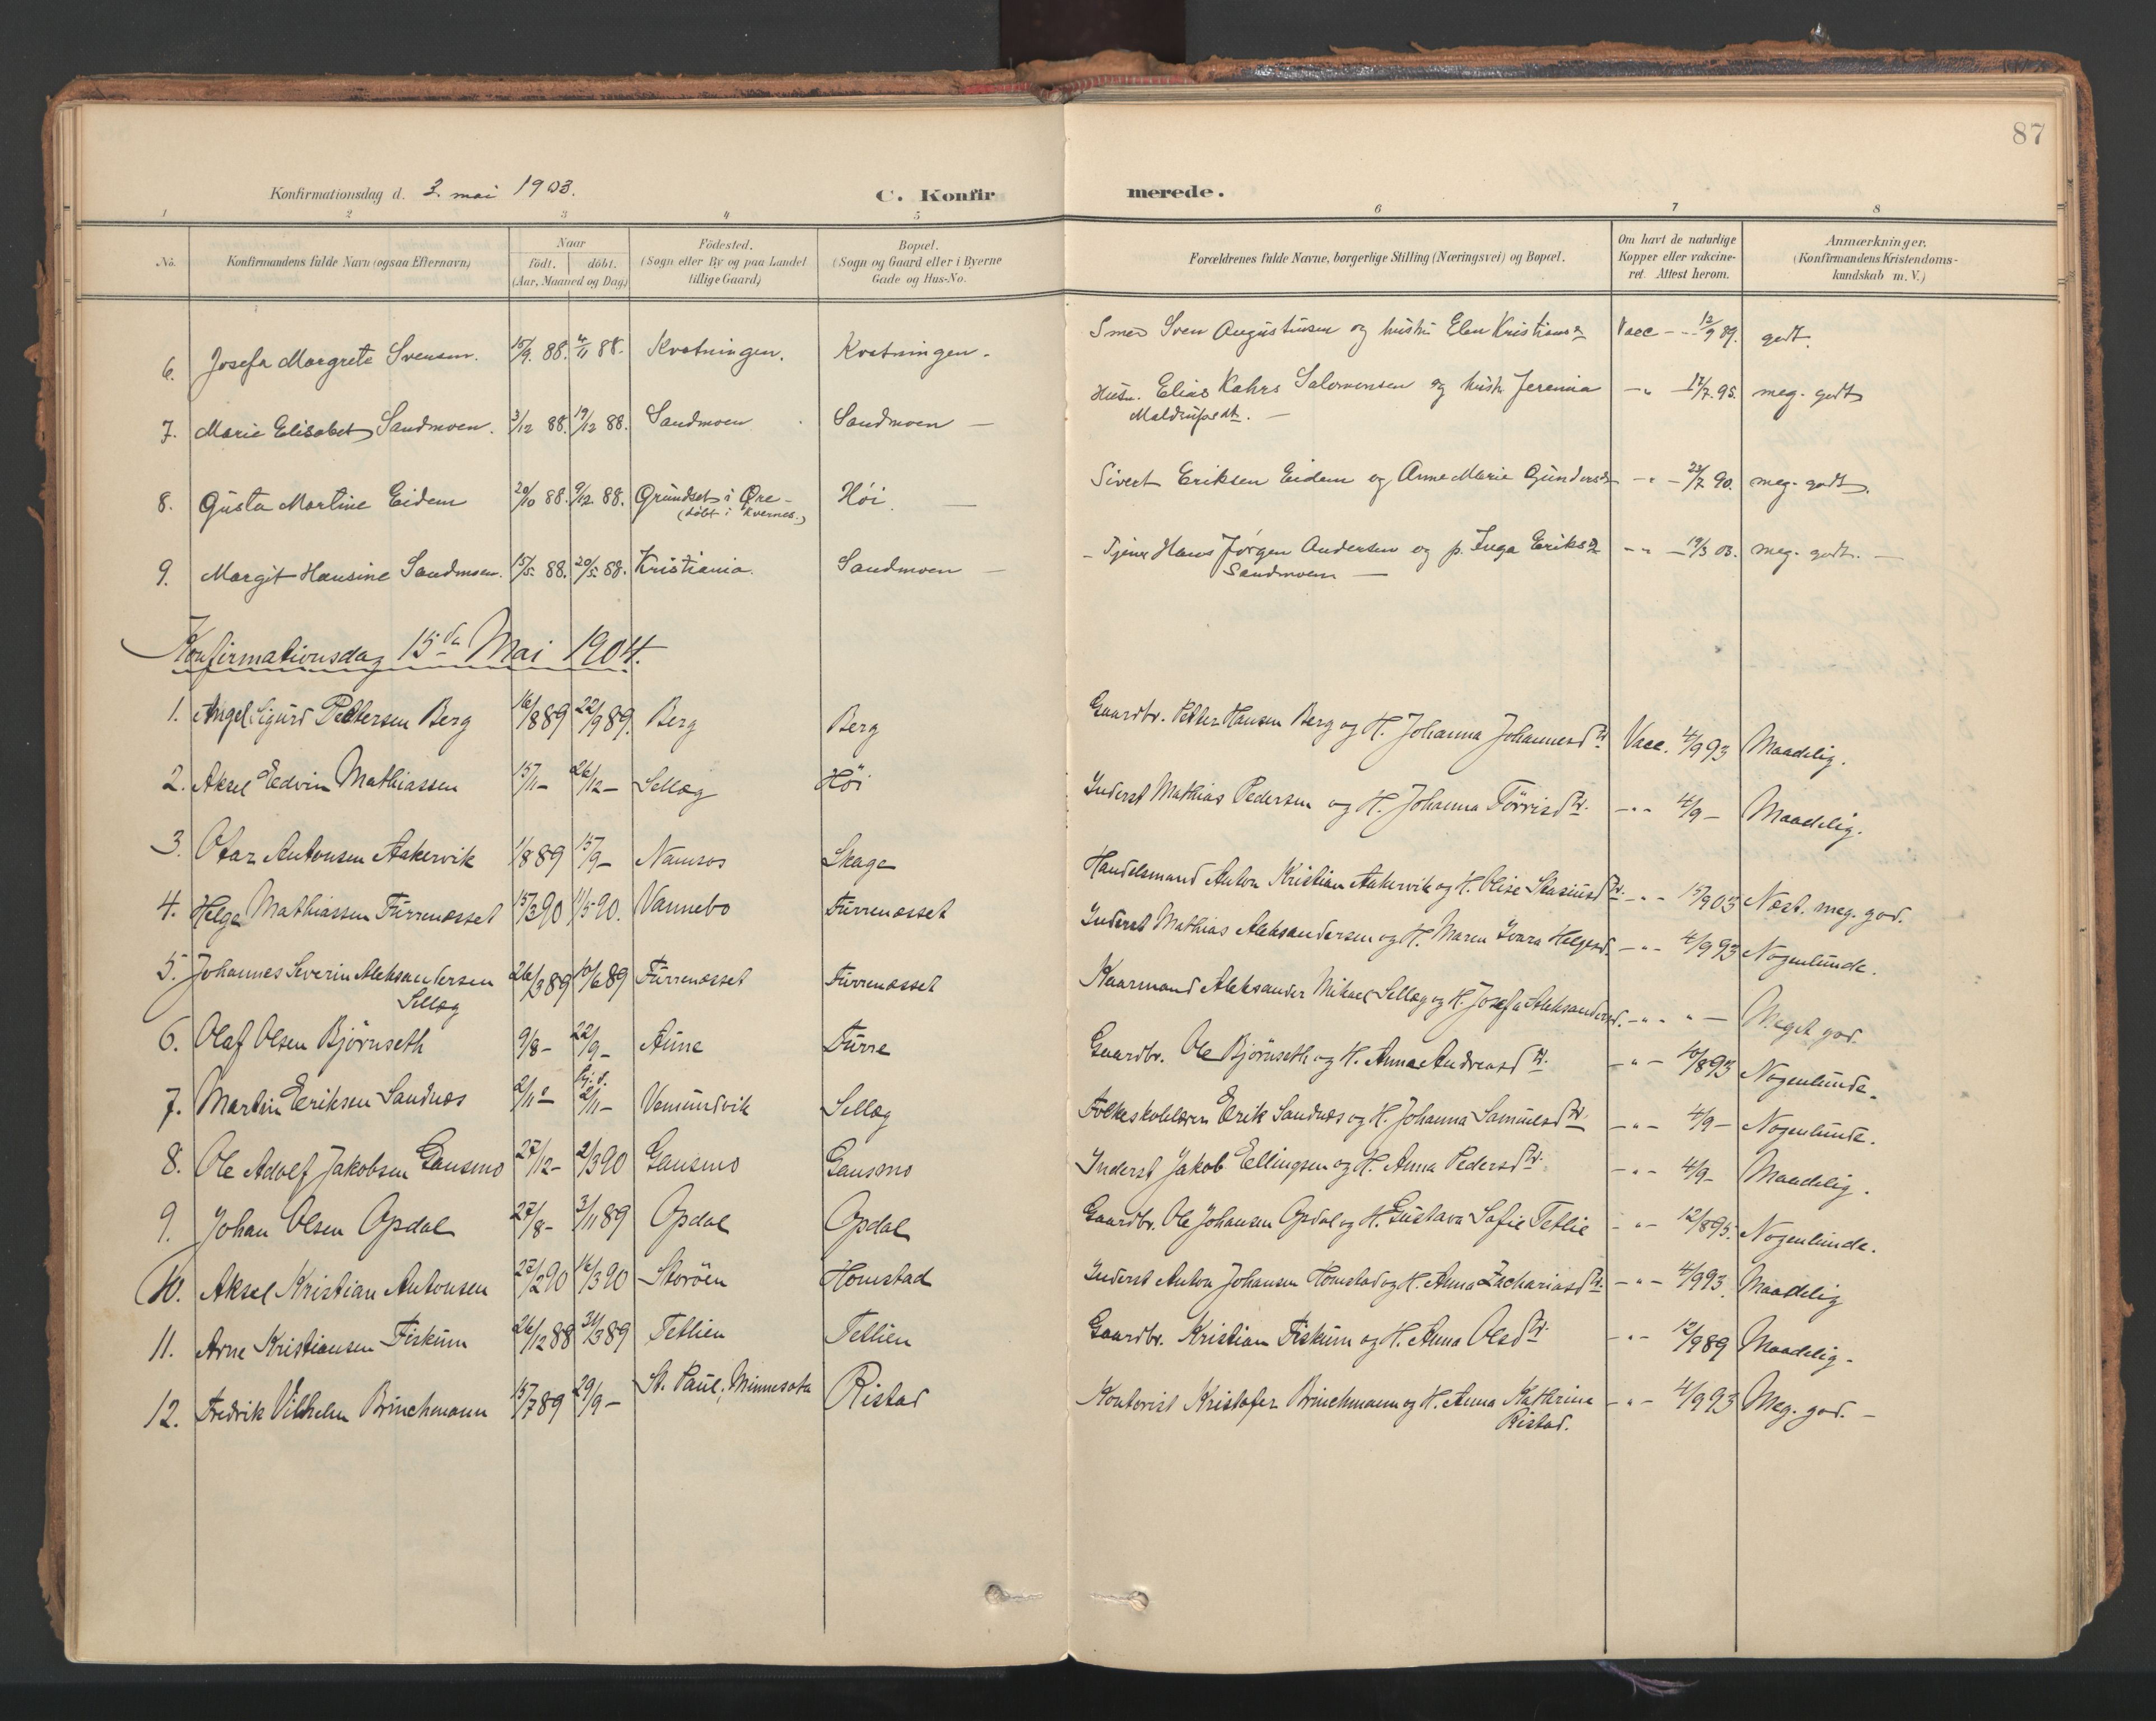 87
Konfirmationsdag d. 3. mai 1903.
C. Konfirmerede.
1 2 3 4 5 6 7 8
No. Konfirmandens fulde Navn (ogsaa Efternavn) Naar födt. döbt. (Aar, Maaned og Dag) Födested. (Sogn eller By og paa Landet tillige Gaard) Bopæl. (Sogn og Gaard eller i Byerne Gade og Hus-No. Forældrenes fulde Navne, borgerlige Stilling (Næringsvei) og Bopæl. Om havt de naturlige Kopper eller vakcineret. Attest herom. Anmærkninger. (Konfirmandens Kristendomskundskab m. V.)
6. Josefa Margrete Svensen. 15/9. 88. 4/11 88. Kvatningen. Kvatningen. Smed Sven Augustinsen og hustru Elen Kristiansd. Vacc - - 12/9 89. godt.
7. Marie Elisabet Sandmoen. 3/12 88. 19/12 88. Sandmoen Sandmoen — Husm. Elias Kahrs Salomonsen og hustr. Jeremia - " - 17/7. 95. meg. godt
8. Gusta Martine Eidem 20/10 88. 9/12 88. Grundset i Øre - (döbt i Kvernes.) Höi. — Sivert Eriksen Eidem og Anne Marie Gundersd. - " - 22/7 90. meg. godt.
9. Margit Hansine Sandmoen. 15/5. 88. 20/5. 88. Kristiania. Sandmoen — Tjener Hans Jörgen Andersen og p. Inga Eriksd. Sandmoen — - " - 19/3 03. meg. godt. —
Konfirmationsdag 15de Mai 1904.
1. Angel Sigurd Pettersen Berg 16/8 89 22/9 89. Berg Berg Gaardbr. Petter Hansen Berg og H. Johanna Johannesdtr. Vacc. 4/9 93 Maadelig.
2. Aksel Edvin Mathiassen 15/11 - 26/12 - Sellæg Höi Inderst Mathias Pedersen og H. Johanna Törrisdtr. - " - 4/9 - Maadelig.
3. Otar Antonsen Aakervik 1/8 89 15/9 - Namsos Skage Handelsmand Anton Kristian Aakervik og H. Olise Stasiusdtr. - " - 15/9 03 Næst. meg. god.
4. Helge Mathiassen Furrenæsset 15/3 90 11/5 90. Vannebo Furrenæsset Inderst Mathias Aleksandersen og H. Maren Ivara Helgesd. - " - 4/9 93 Nogenlunde.
5. Johannes Severin Aleksandersen Sellæg 26/3 89 10/6 89 Furrenæsset Furrenæsset Kaarmand Aleksander Mikael Sellæg og H. Josefa Aleksandersd. - " - " - Meget god.
6. Olaf Olsen Björnseth 9/8 - 22/9 - Aune Furre Gaardbr. Ole Björnseth og H. Anna Andreasdtr. - " - 10/8 93 Nogenlunde.
7. Martin Eriksen Sandnæs 2/11 - hj. d. 2/11 - Vemundvik Sellæg Folkeskolelærer Erik Sandnæs og H. Johanna Samuelsdtr. - " - 4/9 - Nogenlunde.
8. Ole Adolf Jakobsen Gansmo 27/12 - 2/3 90 Gansmo Gansmo Inderst Jakob Ellingsen og H. Anna Pedersdtr. - " - 4/9 - Maadelig.
9. Johan Olsen Opdal 27/8 - 3/11 89 Opdal Opdal Gaardbr. Ole Johansen Opdal og H. Gustava Sofie Tetlie - " - 12/8 95. Nogenlunde.
10. Aksel Kristian Antonsen 22/2 90 16/3 90 Storöen Homstad Inderst Anton Johansen Homstad og H. Anna Zachariasdtr. - " - 4/9 93. Maadelig
11. Arne Kristiansen Fiskum 26/12 88 31/3 89 Tetlien Tetlien Gaardbr. Kristian Fiskum og H. Anna Olsdtr. - " - 12/9 89 Maadelig.
12. Fredrik Vilhelm Brinchmann 15/7 89 29/9 - St. Paul, Minnesota Ristad Kontorist Kristofer Brinchmann og H. Anna Kathrine Ristad. - " - 4/9 93 Meg. god. —